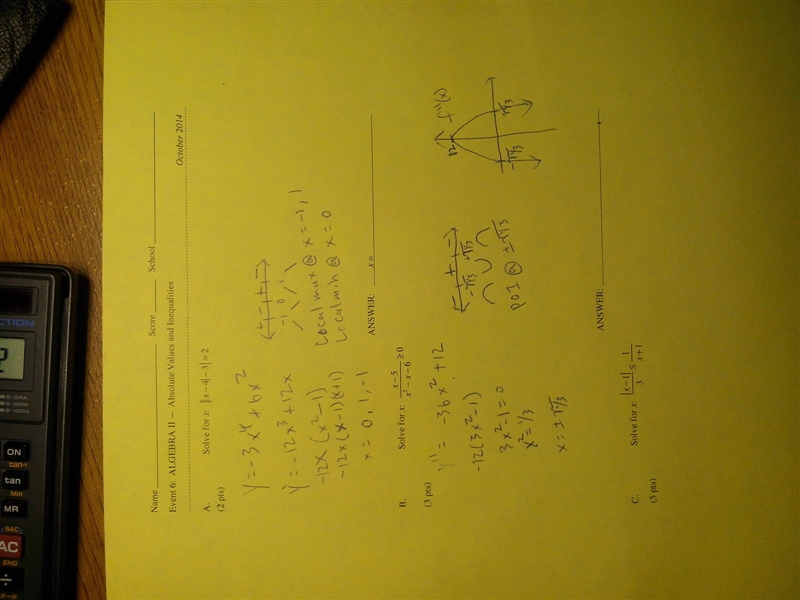 Name Score School
Event 6: ALGEBRA II — Absolute Values and Inequalities October 2014
A. Solve for x: ||x−4|−3|=2
(2 pts)
y=-3x⁴+6x²
y'=-12x³+12x
-12x(x²-1)
-12x(x-1)(x+1)
x=0,1,-1
+ - + -
-1 0 1
local max @ x=-1,1
local min @ x=0
ANSWER: x=
B. Solve for x: (x−5)/(x²−x−6) ≥ 0
(3 pts)
y''=-36x²+12
-12(3x²-1)
3x²-1=0
x²=1/3
x=±√1/3
- + -
-√1/3 +√1/3
POI @ ±√1/3
12 f''(x)
-√1/3 √1/3
ANSWER:
C. Solve for x: |x−1|/3 ≤ 1/(x+1)
(5 pts)
CTION
2
ON
tan⁻¹
tan
Min
MR
SAC
AC
ENG
÷
P→R